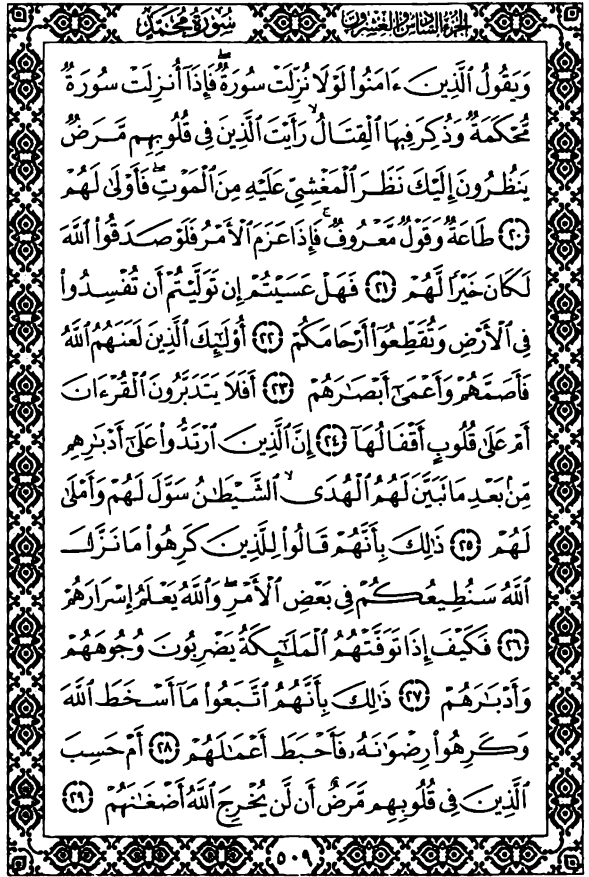 الجزء السادس والعشرون سورة محمد
وَيَقُولُ الَّذِينَ ءَامَنُوا لَوْلَا نُزِّلَتْ سُورَةٌ ۖ فَإِذَآ أُنزِلَتْ سُورَةٌ
مُّحْكَمَةٌ وَذُكِرَ فِيهَا الْقِتَالُ ۙ رَأَيْتَ الَّذِينَ فِي قُلُوبِهِم مَّرَضٌ
يَنظُرُونَ إِلَيْكَ نَظَرَ الْمَغْشِيِّ عَلَيْهِ مِنَ الْمَوْتِ ۖ فَأَوْلَىٰ لَهُمْ
﴿٢٠﴾ طَاعَةٌ وَقَوْلٌ مَّعْرُوفٌ ۚ فَإِذَا عَزَمَ الْأَمْرُ فَلَوْ صَدَقُوا اللَّهَ
لَكَانَ خَيْرًا لَّهُمْ ﴿٢١﴾ فَهَلْ عَسَيْتُمْ إِن تَوَلَّيْتُمْ أَن تُفْسِدُوا
فِي الْأَرْضِ وَتُقَطِّعُوٓا أَرْحَامَكُمْ ﴿٢٢﴾ أُوْلَٰٓئِكَ الَّذِينَ لَعَنَهُمُ اللَّهُ
فَأَصَمَّهُمْ وَأَعْمَىٰٓ أَبْصَٰرَهُمْ ﴿٢٣﴾ أَفَلَا يَتَدَبَّرُونَ الْقُرْءَانَ
أَمْ عَلَىٰ قُلُوبٍ أَقْفَالُهَآ ﴿٢٤﴾ إِنَّ الَّذِينَ ارْتَدُّوا عَلَىٰٓ أَدْبَٰرِهِم
مِّنۢ بَعْدِ مَا تَبَيَّنَ لَهُمُ الْهُدَى ۙ الشَّيْطَٰنُ سَوَّلَ لَهُمْ وَأَمْلَىٰ
لَهُمْ ﴿٢٥﴾ ذَٰلِكَ بِأَنَّهُمْ قَالُوا لِلَّذِينَ كَرِهُوا مَا نَزَّلَ
اللَّهُ سَنُطِيعُكُمْ فِي بَعْضِ الْأَمْرِ ۖ وَاللَّهُ يَعْلَمُ إِسْرَارَهُمْ
﴿٢٦﴾ فَكَيْفَ إِذَا تَوَفَّتْهُمُ الْمَلَٰٓئِكَةُ يَضْرِبُونَ وُجُوهَهُمْ
وَأَدْبَٰرَهُمْ ﴿٢٧﴾ ذَٰلِكَ بِأَنَّهُمُ اتَّبَعُوا مَآ أَسْخَطَ اللَّهَ
وَكَرِهُوا رِضْوَٰنَهُۥ فَأَحْبَطَ أَعْمَٰلَهُمْ ﴿٢٨﴾ أَمْ حَسِبَ
الَّذِينَ فِي قُلُوبِهِم مَّرَضٌ أَن لَّن يُخْرِجَ اللَّهُ أَضْغَٰنَهُمْ ﴿٢٩﴾
٥٠٩